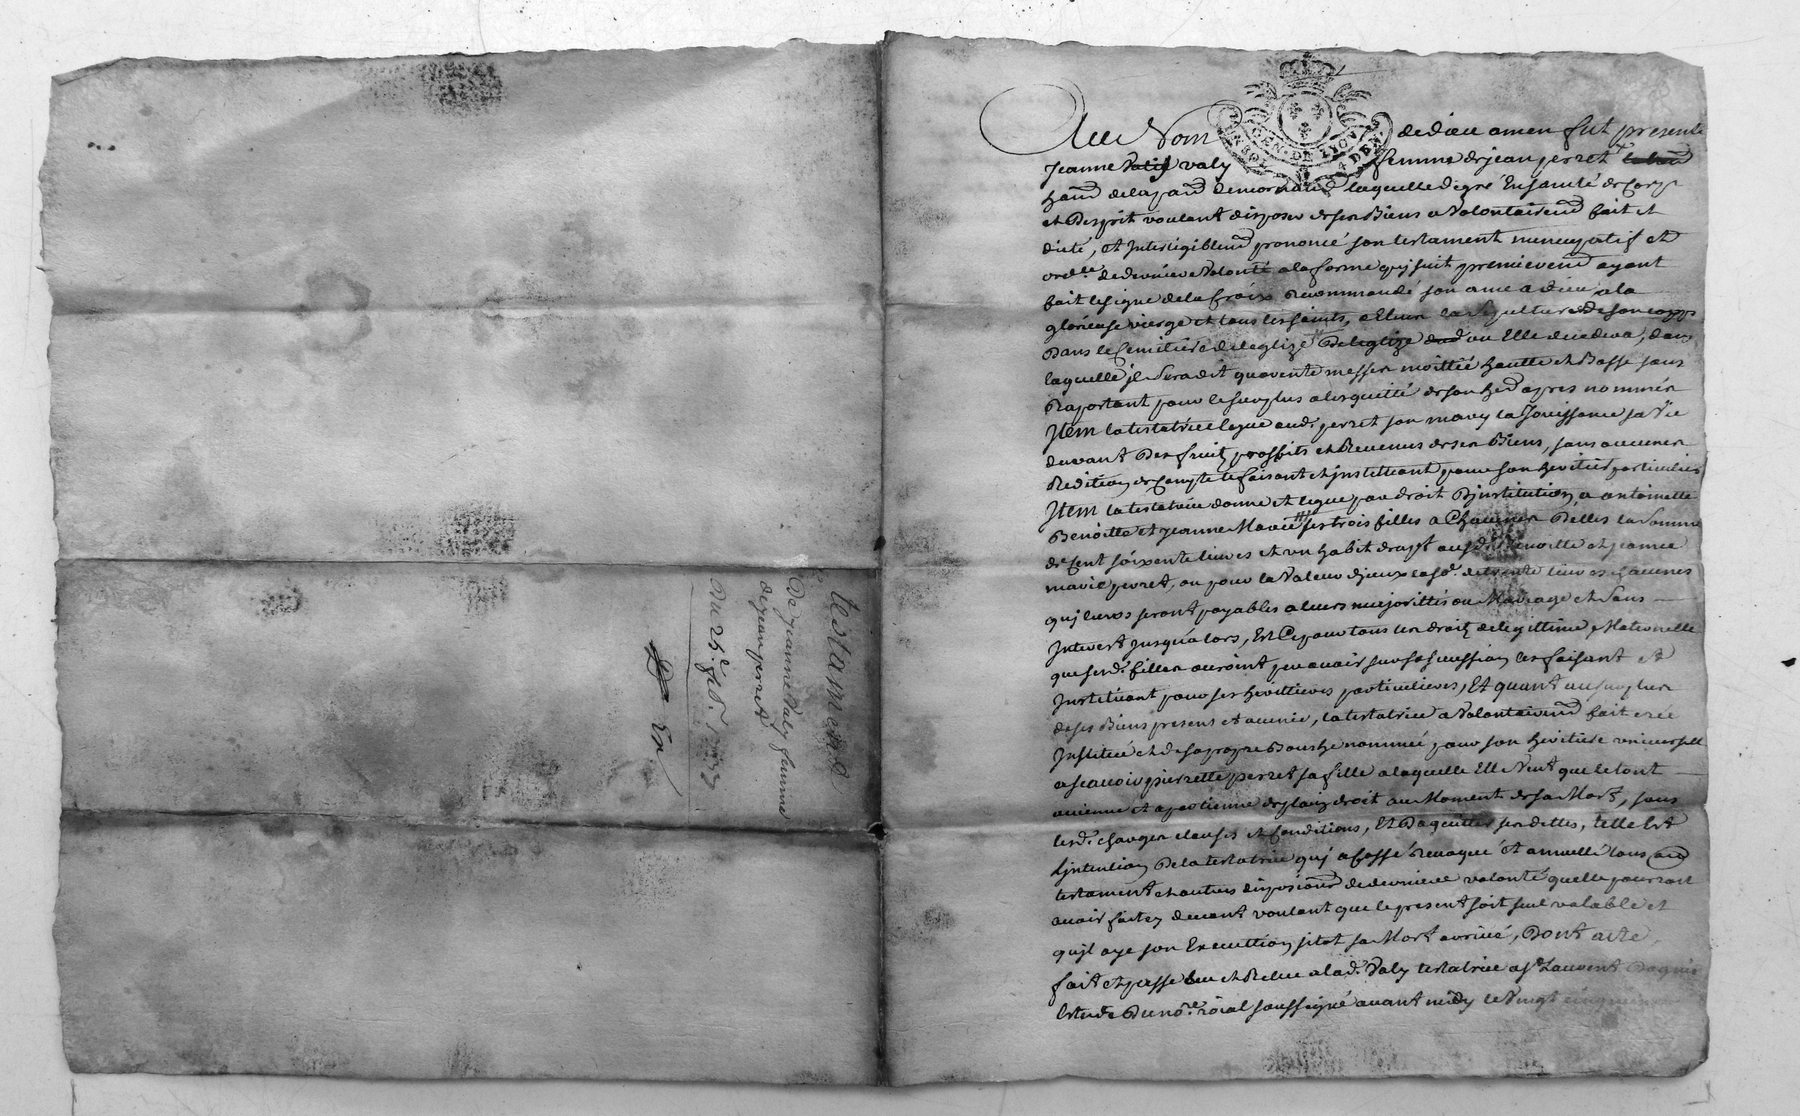 testament
De jeanne Valy femme
de jean perret
Du 25e feb.
Au Nom de dieu amen fut presente
GEN. DE LYON
4 DEN
Jeanne valy femme de jean perret
laquelle de gré En santé de Corps
et Desprit voulant disposer de ses Biens a Volontairemt fait et
dicté, et Inteligiblemt prononcé son testament nuncupatif et
ordce de derniere Volonté a la forme quj suit premieremt ayant
fait le signe de la Croix Recommandé son ame a dieu, a la
glorieuse vierge et tous les saints, a Eleu la sepulture de son corps
Dans le Cemitiere de leglize ou Elle decedera, dans
laquelle jl sera dit quarente messes moittié hautte et Basse sans
Raportant pour le surplus a lesquitté de son hed apres nommée
Item la testatrice legue aud. perret son mary la Jouissance sa Vie
durant Des fruitz proffits et Revenus de ses Biens, sans aucunes
Redition de Compte le faisant et jnstittuant pour son heritier particulier
Item la testatrice donne et legue par droit Djnstitution a antoinette
Benoitte et Jeanne Marie ses trois filles a Chacunes Delles la Somme
de Cent soixente livres et un habit drapt ausd. Benoitte et jeanne
marie perret, ou pour la Valeur djceux lasde. de trente livres chacunes
quj leurs seront payables a leurs majorittés ou Mariage et Sans
Interest jusqu'a lors, Est Ce pour tous les droitz de legittime Maternelle
que sesd. filles auroint peu avoir sur sa sucession les faisant et
Instituant pour ses herittieres particulieres, Et quant au surplus
de ses Biens presens et avenir, la testatrice a Volontairemt fait créé
Institué et de sa propre Bouche nommée pour son heritiere universelle
a scavoir pierrette perret sa fille a laquelle Elle Veut que le tout
avienne et apartienne de plain droit au Moment de sa Mort, sous
lesd. charges clauses et Conditions, Et Daquitter ses dettes, telle Est
Ljntention De la testatrice quj a Cassé Revoqué et annullé tous
testament et autres disposions de derniere volonté quelle pourroit
avoir fait cy devant voulant que le present soit seul valable et
qu'jl aye son Execution sitot sa Mort arrivé, Dont acte
fait et passé Leu et Releu a lad. Valy testatrice a St Laurent
Estude Du nore roial soussigné avant midy le Vingt cinquieme